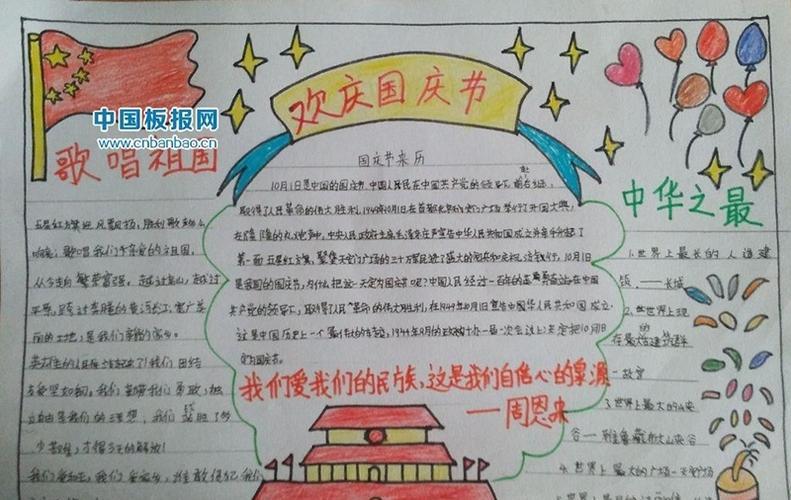 欢庆国庆节
中国板报网
www.cnbanbao.cn
歌唱祖国
五星红旗迎风飘扬,胜利歌声多么
响亮;歌唱我们亲爱的祖国,
从今走向繁荣富强。越过高山,越过
平原,跨过奔腾的黄河长江;宽广美
丽的土地,是我们亲爱的家乡。
英雄的人民站起来了!我们团结
友爱坚如钢。我们
我们战胜了多
少苦难,才得今天的解放!
我们爱和平,我们爱家乡,谁敢侵犯我们
国庆节来历
10月1日是中国的国庆节,中国人民在中国共产党的领导下,前赴后继,
取得了人民革命的伟大胜利,1949年10月1日在首都北京天安门广场举行了开国大典,
在隆隆的礼炮声中,中央人民政府主席毛泽东庄严宣告中华人民共和国成立并亲手升起了
第一面五星红旗,聚集天安门广场的三十万军民进行了盛大的阅兵和庆祝游行。10月1日
是我国的国庆节,为什么把这一天定为国庆节呢?中国人民经过一百年的英勇奋战在中国
共产党的领导下,取得了人民革命的伟大胜利,在1949年10月1日宣告中国华人民共和国成立,
这是中国历史上一个最伟大的
定为国庆节。
我们爱我们的民族,这是我们自信心的泉源
——周恩来
中华之最
1.世界上最长的人造建
筑,——长城
2.世界上现
存最
—故宫
3.世界上最大的峡
谷——雅鲁藏布大峡谷
4.世界上最大的广场—天安门广场